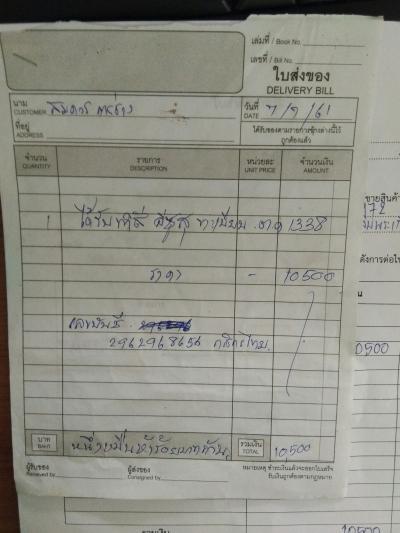 เล่มที่ / Book No.
เลขที่ / Bill No.
ใบส่งของ
DELIVERY BILL
นาม
CUSTOMER
ที่อยู่
ADDRESS
วันที่ 7/9/61
DATE
ได้รับของตามรายการซุ้งล่างนี้ไว้
ถูกต้องแล้ว
จำนวน QUANTITY รายการ DESCRIPTION หน่วยละ UNIT PRICE จำนวนเงิน AMOUNT
1 ได้รับ อีซูซุ ทะเบียน 1338
ราคา - 10500
เลขบัญชี
2962968656 กสิกรไทย
บาท BAHT หนึ่งหมื่นห้าร้อยบาทถ้วน รวมเงิน TOTAL 10,500
ผู้รับของ
Received by
ผู้ส่งของ
Consigned by
หมายเหตุ ชำระเงินแล้วจะออกใบเสร็จ
รับเงินถูกต้องตามกฎหมาย
ขายสินค้า
172
ดังการต่อไป
0500
รวมเงิน
10500